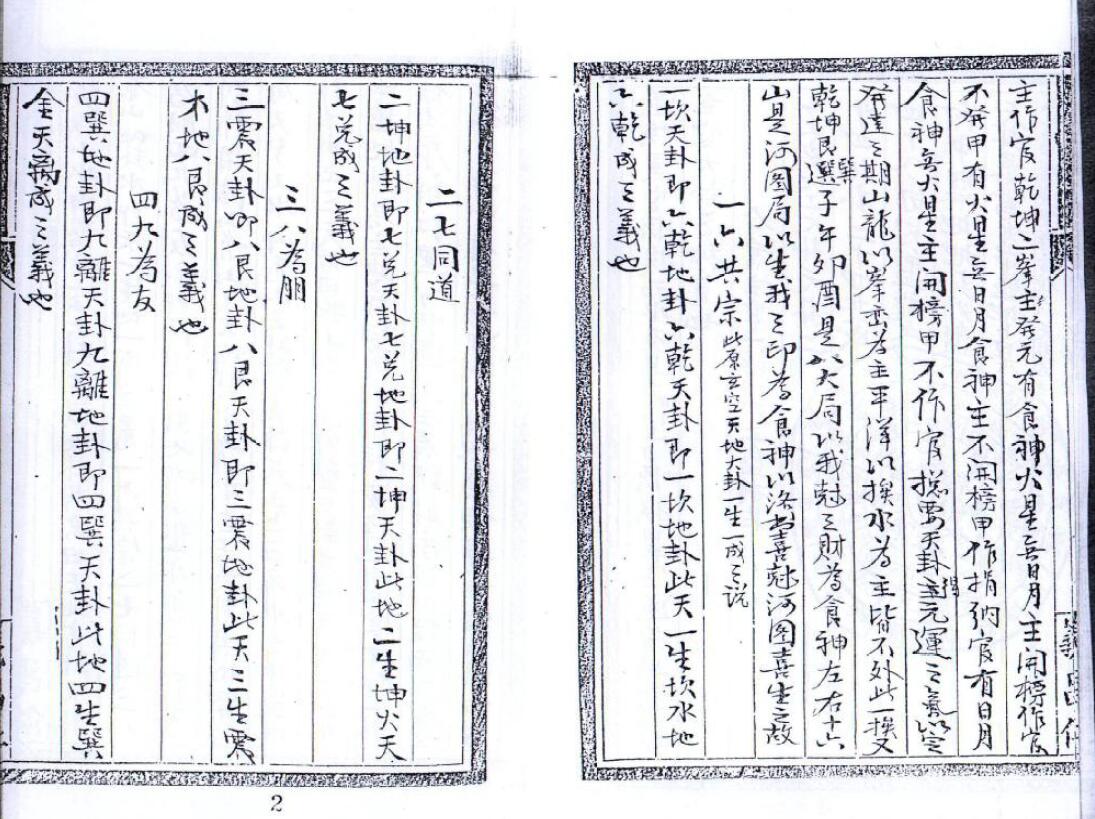 主作官乾坤二峯主發元有食神火星無日月主開榜作官
不發甲有火星無日月食神主不開榜甲作捐納官有日月
食神無火星主開榜甲不作官捴要天卦主得元運之氣以定
發達之期山龍以峯巒為主平洋以挨水為主皆不外此一挨又
乾坤艮巽選子午卯酉是八大局以我尅之財為食神左右十六
山是河圖局以生我之印為食神以洛書喜尅河圖喜生之故
一六共宗 此原玄空天地大卦一生一成之説
一坎天卦即六乾地卦六乾天卦即一坎地卦此天一生坎水地
六乾成之義也
二七同道
二坤地卦即七兑天卦七兑地卦即二坤天卦此地二生坤火天
七兑成之義也
三八為朋
三震天卦即八艮地卦八艮天卦即三震地卦此天三生震
木地八艮成之義也
四九為友
四巽地卦即九離天卦九離地卦即四巽天卦此地四生巽
金天離成之義也
2